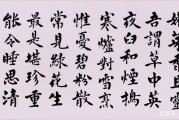 嫩芽香且靈
吾謂草中英
夜臼和煙搗
寒爐對雪烹
惟憂碧粉散
常見綠花生
最是堪珍重
能令睡思清